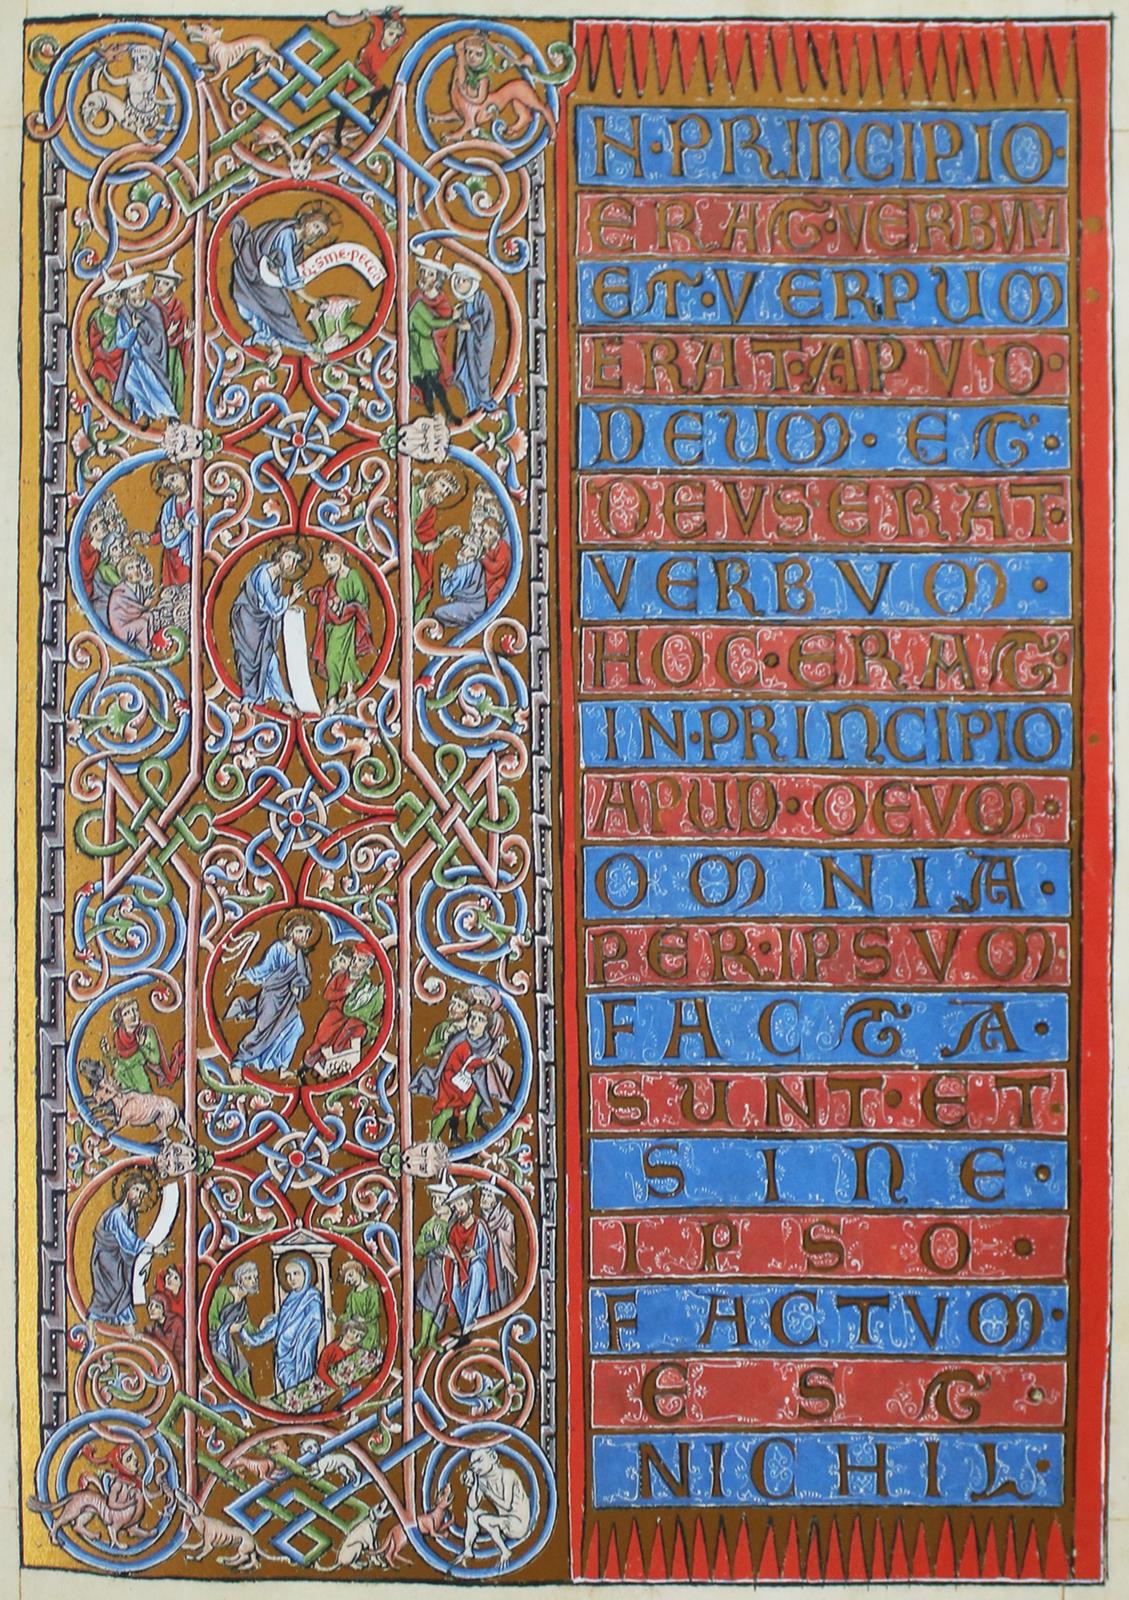 SINE·PECCO
N·PRINCIPIO·
ERAT·VERBVM
ET·VERPUM
ERAT·APVD·
DEUM·ET·
DEVS·ERAT·
VERBVM·
HOC·ERAT·
IN·PRINCIPIO
APUD·DEVM·
OMNIA·
PER·IPSVM·
FACTA·
SUNT·ET·
SINE·
IPSO·
FACTVM·
EST·
NICHIL·